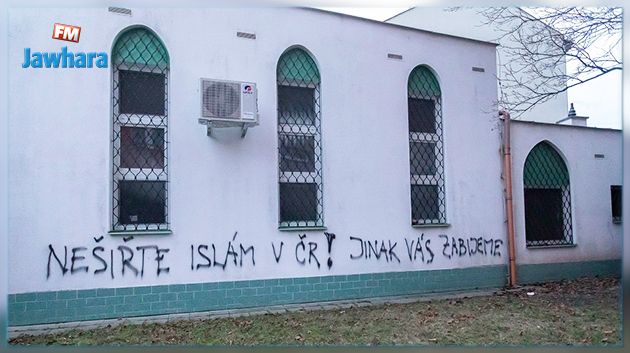 FM
Jawhara
NEŠIŘTE ISLÁM V ČR! JINAK VÁS ZABIJEME